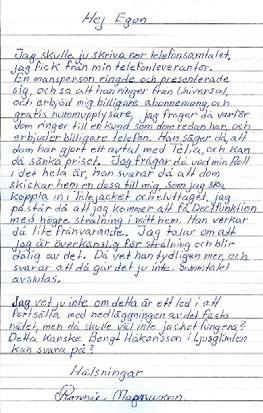 Hej Egon
Jag skulle ju skriva ner telefonsamtalet,
jag fick från min telefonleverantör.
En mansperson ringde och presenterade
sig, och sa att han ringer från Universal,
och erbjöd mig billigare abonnemang och
gratis nummupplysare, jag frågar då varför
dom ringer till en kund som dom redan har, och
erbjuder billigare telefon. Han säger då att
dom har gjort ett avtal med Telia, och kan
då sänka priset. Jag frågar då vad min Roll
i det hela är, han svarar då att dom
skickar hem en dosa till mig, som jag ska
koppla in i Telejacket och eluttaget, jag
påstår då att jag kommer att få Dectfunktion
med högre strålning i mitt hem. Han verkar
då lite frånvarande. Jag talar om att
jag är överkänslig för strålning och blir
dålig av det. Då vet han tydligen mer, och
svarar att då går det ju inte. Samtalet
avslutas.
Jag vet ju inte om detta är ett led i att
fortsätta med nedläggningen av det fasta
nätet, men då skulle väl inte jacket fungera?
Detta kanske Bengt Håkansson i Ljusglimten
kan svara på?
Hälsningar
Ronnie Magnusson